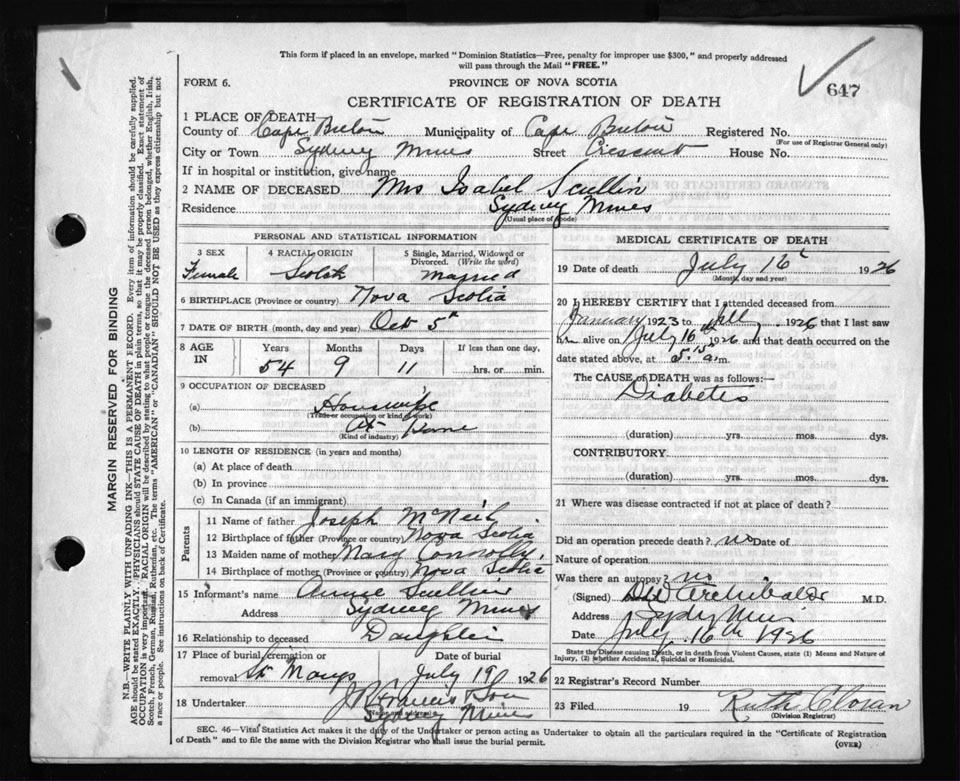 This form if placed in an envelope, marked "Dominion Statistics—Free, penalty for improper use $300," and properly addressed
will pass through the Mail "FREE."
647
FORM 6.
PROVINCE OF NOVA SCOTIA
CERTIFICATE OF REGISTRATION OF DEATH
1 PLACE OF DEATH—
County of Cape Breton Municipality of Cape Breton Registered No.
(For use of Registrar General only)
City or Town Sydney Mines Street Crescent House No.
If in hospital or institution, give name
2 NAME OF DECEASED Mrs Isabel Scullin
Residence Sydney Mines
(Usual place of abode)
PERSONAL AND STATISTICAL INFORMATION
3 SEX
Female
4 RACIAL ORIGIN
Scotch
5 Single, Married, Widowed or
Divorced. (Write the word)
Married
6 BIRTHPLACE (Province or country) Nova Scotia
7 DATE OF BIRTH (month, day and year) Oct 5th
8 AGE
IN
Years Months Days If less than one day,
54 9 11 hrs. or min.
9 OCCUPATION OF DECEASED
(a) Housewife
(Trade or occupation or kind of work)
(b) At Home
(Kind of industry)
10 LENGTH OF RESIDENCE (in years and months)
(a) At place of death
(b) In province
(c) In Canada (if an immigrant)
Parents
11 Name of father Joseph McNeil
12 Birthplace of father (Province or country) Nova Scotia
13 Maiden name of mother Mary Connolly,
14 Birthplace of mother (Province or country) Nova Scotia
15 Informant's name Annie Scullin
Address Sydney Mines
16 Relationship to deceased Daughter
17 Place of burial, cremation or
removal St Marys
Date of burial
July 19 1926
18 Undertaker Francis & Son
(Name and address)
Sydney Mines
MEDICAL CERTIFICATE OF DEATH
19 Date of death July 16th 1926
(Month, day and year)
20 I HEREBY CERTIFY that I attended deceased from
January 1923 to July 1926 that I last saw
her alive on July 16th 1926 and that death occurred on the
date stated above, at 5.15 a.m.
The CAUSE OF DEATH was as follows:—
Diabetes
(duration) yrs. mos. dys.
CONTRIBUTORY.
(duration) yrs. mos. dys.
21 Where was disease contracted if not at place of death?
Did an operation precede death? no Date of
Nature of operation
Was there an autopsy? no
(Signed) Archibald M.D.
Address Sydney Mines
Date July 16th 1926
State the Disease causing Death, or in death from Violent Causes, state (1) Means and Nature of
Injury, (2) whether Accidental, Suicidal or Homicidal.
22 Registrar's Record Number
23 Filed 19 Ruth
(Division Registrar)
SEC. 46—Vital Statistics Act makes it the duty of the Undertaker or person acting as Undertaker to obtain all the particulars required in the "Certificate of Registration
of Death" and to file the same with the Division Registrar who shall issue the burial permit.
(OVER)
MARGIN RESERVED FOR BINDING
N.B.—WRITE PLAINLY WITH UNFADING INK—THIS IS A PERMANENT RECORD. Every item of information should be carefully supplied.
AGE should be stated EXACTLY. PHYSICIANS should STATE CAUSE OF DEATH in plain terms, so that it may be properly classified. Exact statement of
OCCUPATION is very important. RACIAL ORIGIN will be described by stating to what people or tongue the deceased person belonged, whether English, Irish,
Scotch, French, German, Russian, Ruthenian, etc. The terms "AMERICAN" or "CANADIAN" SHOULD NOT BE USED as they express citizenship but not
a race or people. See instructions on back of Certificate.